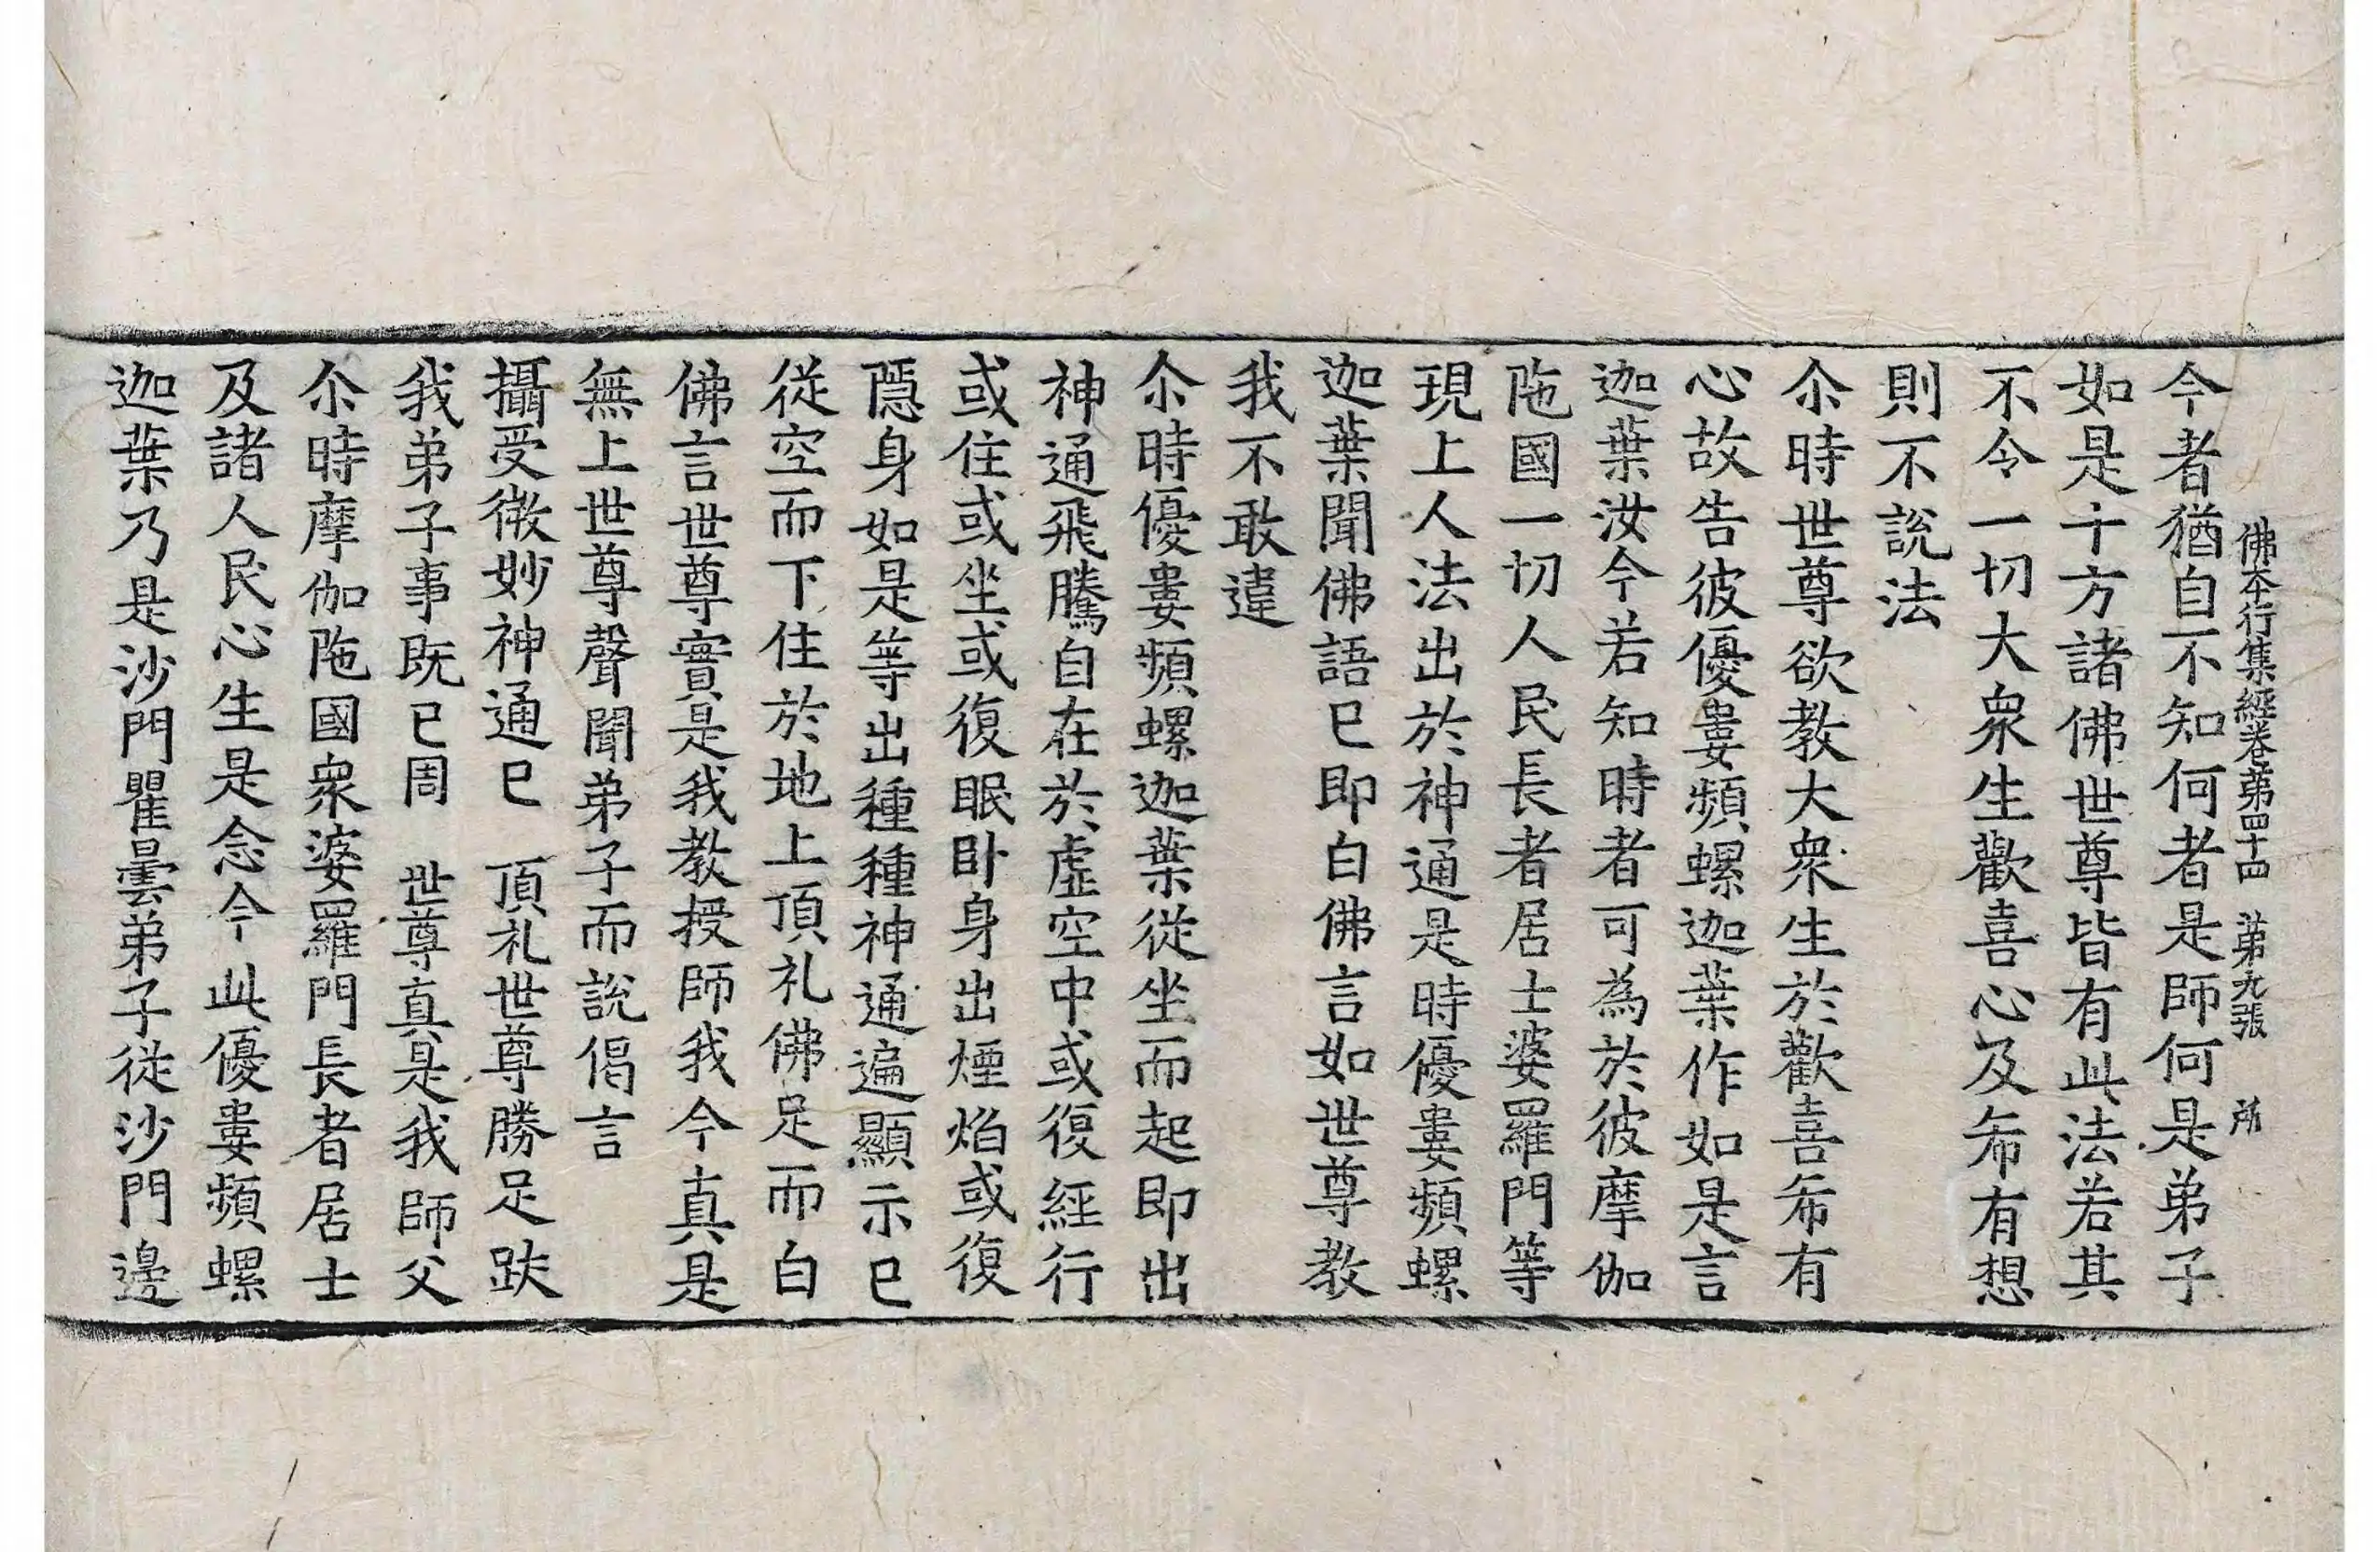 佛本行集經卷第四十四 第九張 所
今者猶自不知何者是師何是弟子
如是十方諸佛世尊皆有此法若其
不令一切大衆生歡喜心及希有想
則不說法
尒時世尊欲教大衆生於歡喜希有
心故告彼優婁頻螺迦葉作如是言
迦葉汝今若知時者可為於彼摩伽
陁國一切人民長者居士婆羅門等
現上人法出於神通是時優婁頻螺
迦葉聞佛語已即白佛言如世尊教
我不敢違
尒時優婁頻螺迦葉從坐而起即出
神通飛騰自在於虛空中或復經行
或住或坐或復眠卧身出煙焰或復
隱身如是等出種種神通遍顯示已
從空而下住於地上頂礼佛足而白
佛言世尊實是我教授師我今真是
無上世尊聲聞弟子而說偈言
攝受微妙神通已 頂礼世尊勝足趺
我弟子事既已周 世尊真是我師父
尒時摩伽陁國衆婆羅門長者居士
及諸人民心生是念今此優婁頻螺
迦葉乃是沙門瞿曇弟子從沙門邊